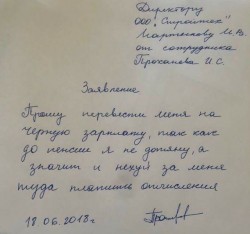 Директору
ООО "Стройтек"
Мартынову И.В.
от сотрудника
Проханова И.С.
Заявление
Прошу перевести меня на
чёрную зарплату, так как
до пенсии я не дотяну, а
значит и нехуй за меня
туда платить отчисления
18.06.2018г